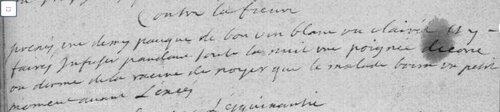 Contre la fievre
prenés une demy pauque de bon vin blanc ou clairet et y
faires Infuser pandant toute la nuit une poignée decorce
ou dicorne de la racine de noyer que le malade boira un petit
moment avant L'acces
Esquinantie